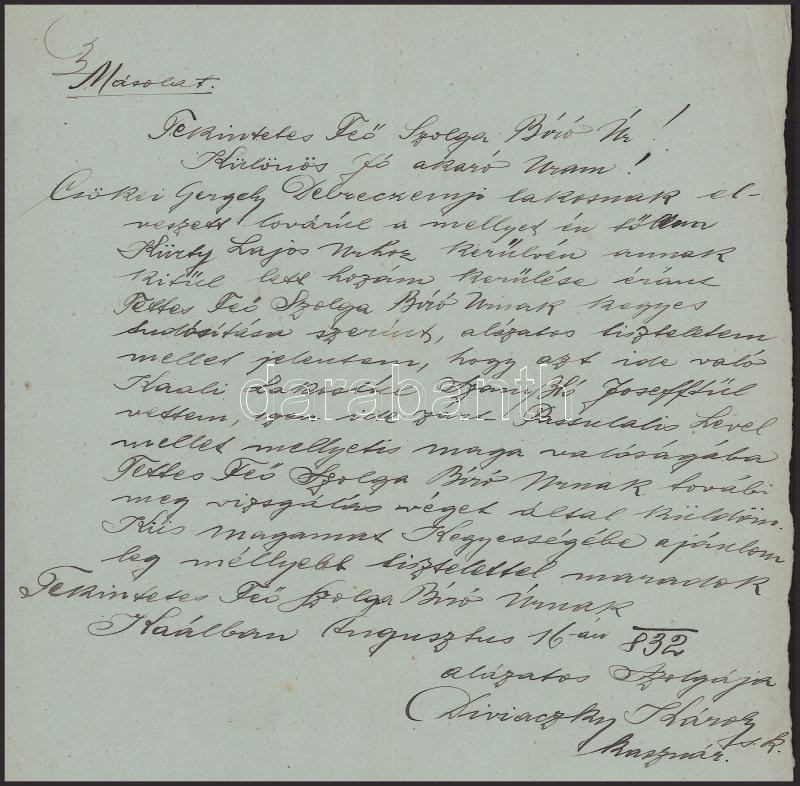 3
Másolat.
Tekintetes Feő Szolga Bíró Úr!
Különös Jó akaró Uram!
Csökei Gergely Debreczenyi lakosnak el-
veszett lovárúl a mellyet én tőllem
Kürty Lajos Urhoz kerülvén annak
kitül lett hozám kerülése éránt
Tettes Feő Szolga Bíró Urnak kegyes
tudósitása szerént, alázatos tiszteletem
mellet jelentem, hogy azt ide való
Kaáli Lakostúl Josefftűl
vettem, ide zárt Passualis Level
mellet mellyetis maga valóságába
Tettes Feő Szolga Bíró Urnak továbi
meg vizsgálás véget által küldöm.
Kiis magamat Kegyességébe ajánlom
leg méllyebb tisztelettel maradok
Tekintetes Feő Szolga Bíró Úrnak
Kaálban Augusztus 16-án 832
alázatos Szolgája
Diviaczky Károly
s. k.
kasznár.
darabanth